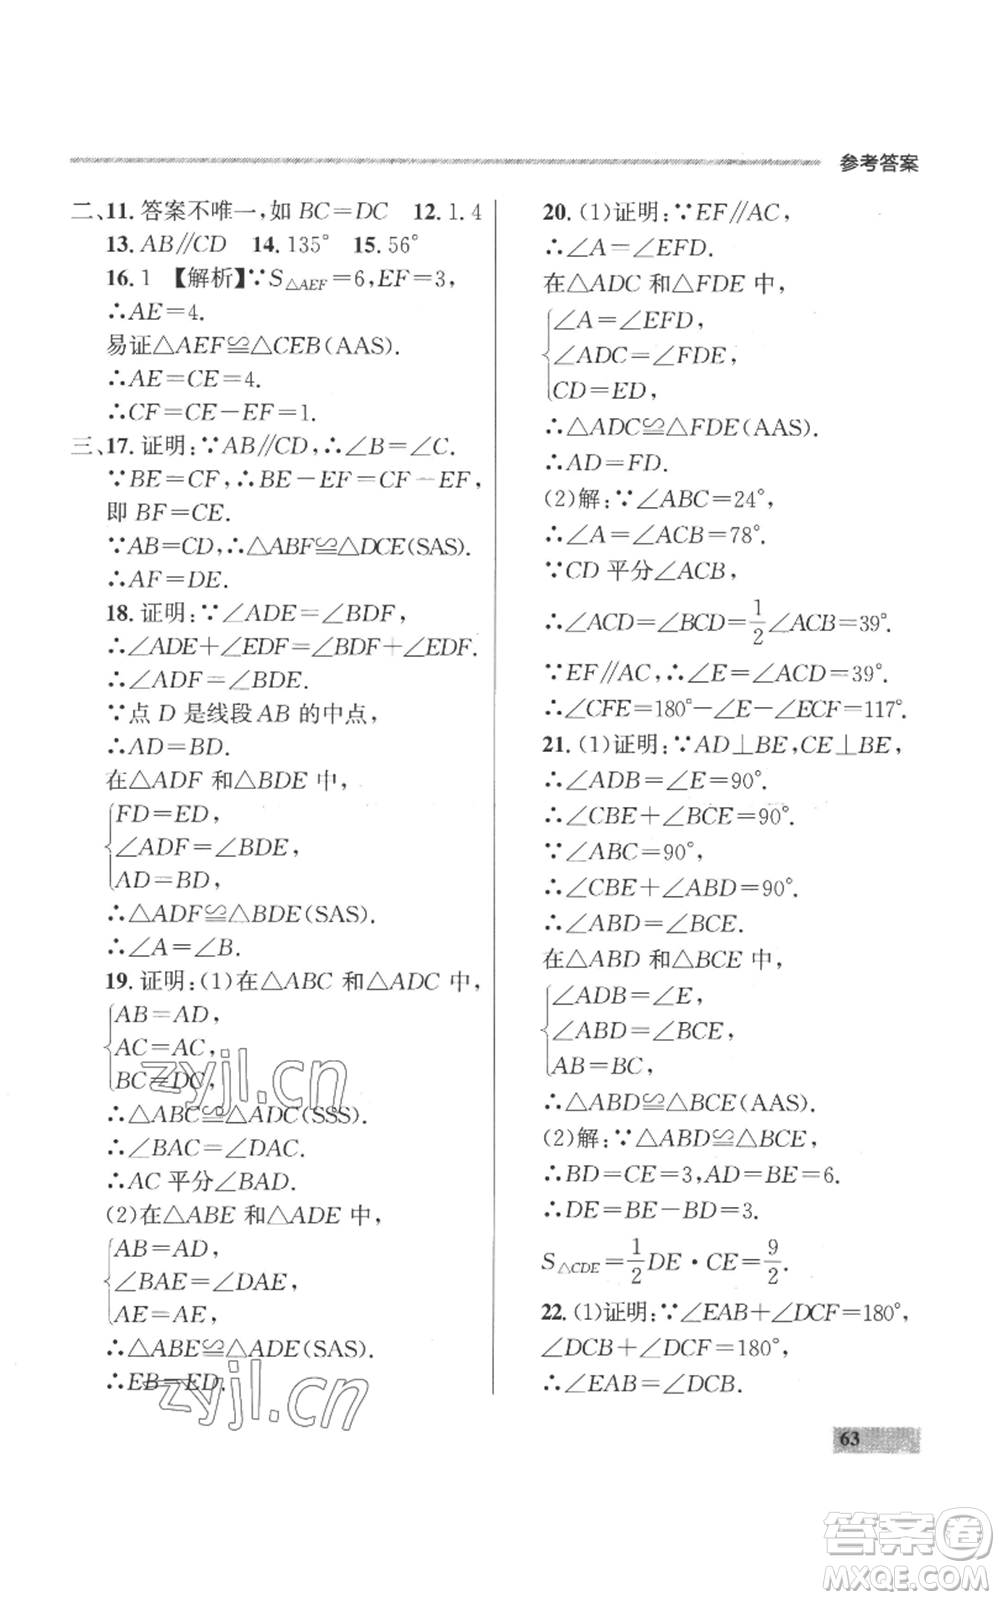 参考答案
二、11. 答案不唯一,如 BC=DC 12. 1.4
13. AB∥CD 14. 135° 15. 56°
16. 1 【解析】∵S△AEF=6,EF=3,
∴AE=4.
易证△AEF≌△CEB(AAS).
∴AE=CE=4.
∴CF=CE-EF=1.
三、17. 证明:∵AB∥CD,∴∠B=∠C.
∵BE=CF,∴BE-EF=CF-EF,
即 BF=CE.
∵AB=CD,∴△ABF≌△DCE(SAS).
∴AF=DE.
18. 证明:∵∠ADE=∠BDF,
∴∠ADE+∠EDF=∠BDF+∠EDF.
∴∠ADF=∠BDE.
∵点 D 是线段 AB 的中点,
∴AD=BD.
在△ADF 和△BDE 中,
FD=ED,
∠ADF=∠BDE,
AD=BD,
∴△ADF≌△BDE(SAS).
∴∠A=∠B.
19. 证明:(1)在△ABC 和△ADC 中,
AB=AD,
AC=AC,
BC=DC,
∴△ABC≌△ADC(SSS).
∴∠BAC=∠DAC.
∴AC 平分∠BAD.
(2)在△ABE 和△ADE 中,
AB=AD,
∠BAE=∠DAE,
AE=AE,
∴△ABE≌△ADE(SAS).
∴EB=ED.
20. (1)证明:∵EF∥AC,
∴∠A=∠EFD.
在△ADC 和△FDE 中,
∠A=∠EFD,
∠ADC=∠FDE,
CD=ED,
∴△ADC≌△FDE(AAS).
∴AD=FD.
(2)解:∵∠ABC=24°,
∴∠A=∠ACB=78°.
∵CD 平分∠ACB,
∴∠ACD=∠BCD=1/2∠ACB=39°.
∵EF∥AC,∴∠E=∠ACD=39°.
∴∠CFE=180°-∠E-∠ECF=117°.
21. (1)证明:∵AD⊥BE,CE⊥BE,
∴∠ADB=∠E=90°.
∴∠CBE+∠BCE=90°.
∵∠ABC=90°,
∴∠CBE+∠ABD=90°.
∴∠ABD=∠BCE.
在△ABD 和△BCE 中,
∠ADB=∠E,
∠ABD=∠BCE,
AB=BC,
∴△ABD≌△BCE(AAS).
(2)解:∵△ABD≌△BCE,
∴BD=CE=3,AD=BE=6.
∴DE=BE-BD=3.
S△CDE=1/2DE·CE=9/2.
22. (1)证明:∵∠EAB+∠DCF=180°,
∠DCB+∠DCF=180°,
∴∠EAB=∠DCB.
63
zyjl.cn
zyjl.cn
答案圈
MXQE.COM